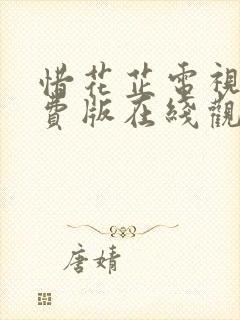 惜花芷電視
費版在綫觀
唐婧